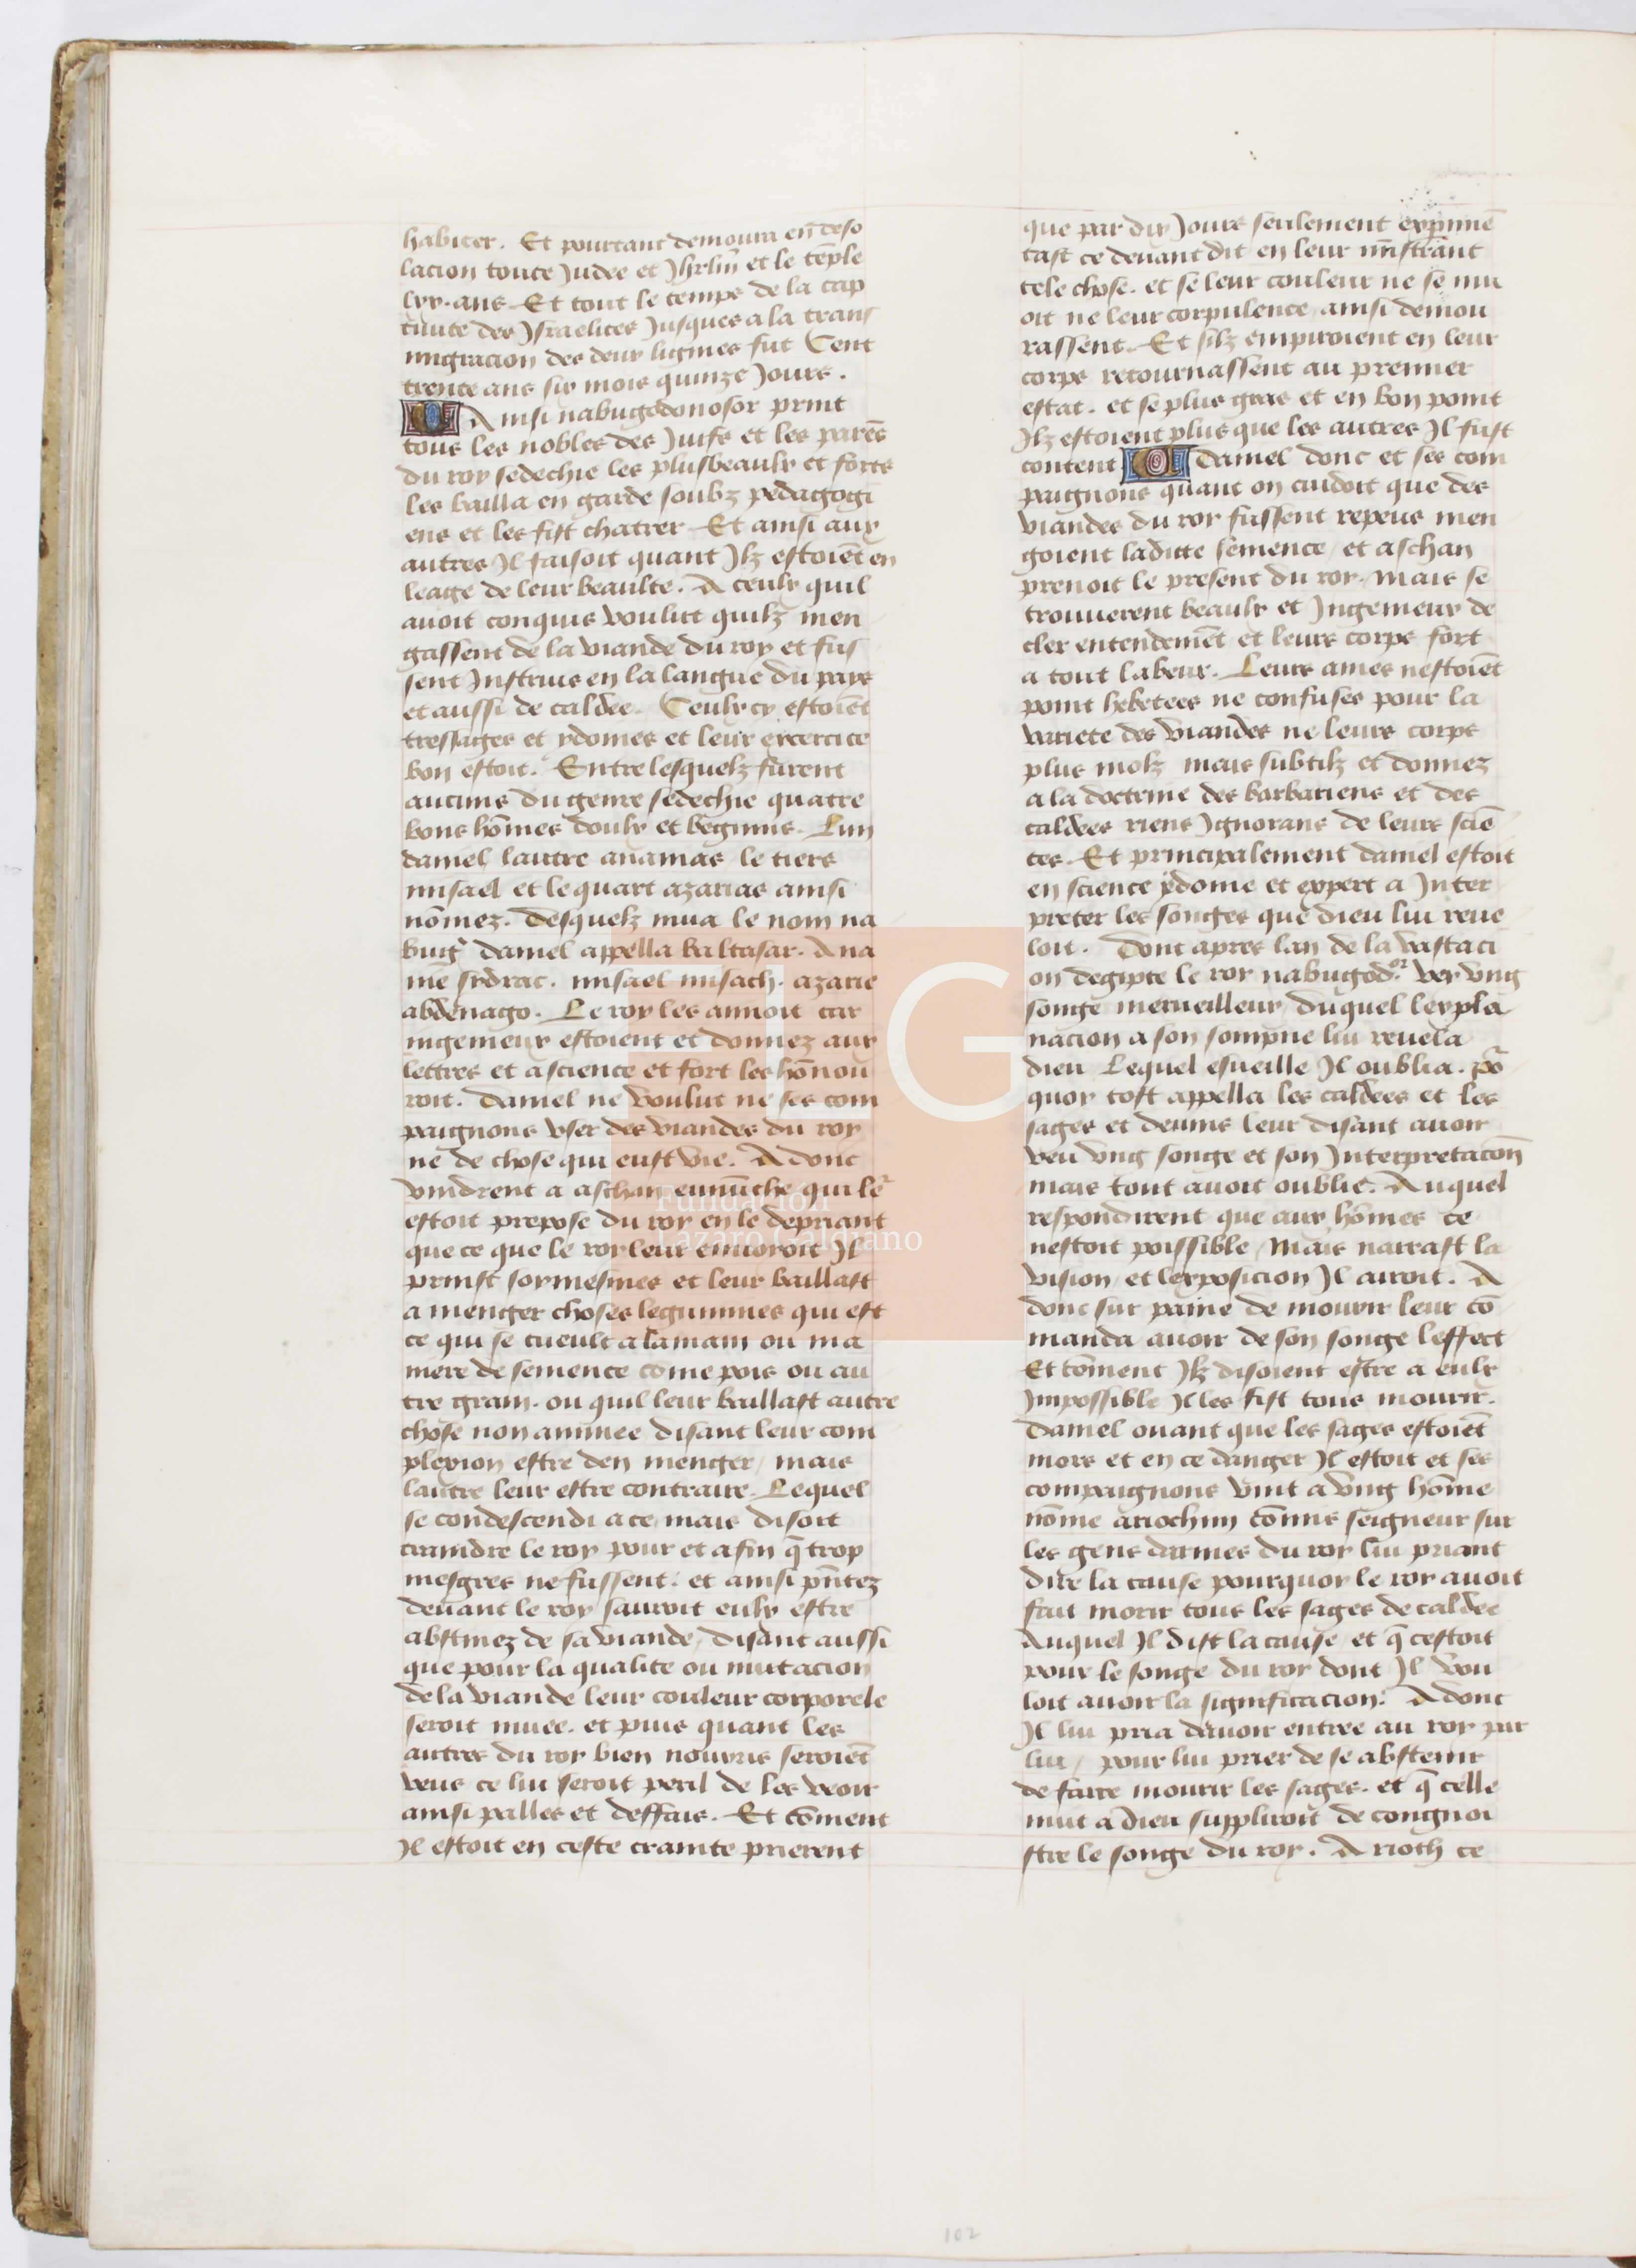 habiter. Et pourtant demoura en deso
lacion toute Judee et Jhrlm̄ et le tēple
lxx. ans. Et tout le temps de la cap
tiuite des Jsraelites Jusques a la trans
migracion des deux lignies fut Cent
trente ans six mois quinze Jours.
Ainsi nabugodonosor print
tous les nobles des Juifs et les parēs
du roy sedechie les plusbeaulx et fortz
les bailla en garde soubz pedagogi
ens et les fist chatrer Et ainsi aux
autres Jl faisoit quant Jlz estoiēt en
leage de leur beaulte. A ceulx quil
auoit conquis voulut quilz men
gassent de la viande du roy et fus
sent Jnstruis en la langue du pays
et aussi de caldee. Ceulx cy estoiēt
tressages et ydoines et leur excercite
bon estoit. Entre lesquelz furent
aucuns du genre sedechie quatre
bons hōmes doulx et begnins. Lun
daniel lautre ananias le tiers
misael et le quart azarias ainsi
nōmez. desquelz mua le nom na
bug daniel appella baltasar. Ana
nie sydrac. misael misach. azarie
abdenago. Le roy les aimoit car
ingenieux estoient et donnez aux
lettres et a science et fort les hōnou
roit. daniel ne voulut ne ses com
paignons vser des viandes du roy
ne de chose qui eust vie. Adonc
vindrent a aschan eunuche qui le
estoit prepose du roy en le depriant
que ce que le roy leur enuoyoit Jl
prinst soymesmes et leur baillast
a menger choses legummes qui est
ce qui se cueult a la main ou ma
niere de semence come pois ou au
tre grain. ou quil leur baillast autre
chose non animee disant leur com
plexion estre den menger / mais
lautre leur estre contraire. Lequel
se condescendi a ce mais disoit
craindre le roy pour et afin q̄ trop
mesgres ne fussent. et ainsi pn̄tez
deuant le roy sauroit eulx estre
abstinez de sa viande / disant aussi
que pour la qualite ou mutacion
de la viande leur couleur corporele
seroit muee. et puis quant les
autres du roy bien nourris seroiēt
veus ce lui seroit peril de les veoir
ainsi palles et deffais. Et cōment
Jl estoit en ceste crainte prierent
que par dix Jours seulement expimē
tast ce deuant dit en leur mīstrant
tele chose. et se leur couleur ne se mu
oit ne leur corpulence ainsi demou
rassent. Et silz empiroient en leur
corps retournassent au premier
estat. et se plus gras et en bon point
Jlz estoient plus que les autres Jl fust
content Daniel donc et ses com
paignons quant on cuidoit que des
viandes du roy fussent repeus men
goient ladicte semence / et aschan
prenoit le present du roy. Mais se
trouuerent beaulx et Jngenieux de
cler entendemēt et leurs corps fort
a tout labeur. Leurs ames nestoiēt
point hebetees ne confuses pour la
variete des viandes ne leurs corps
plus molz mais subtilz et donnez
a la doctrine des barbariens et des
caldees riens Jgnorans de leurs sciē
ces. Et principalement daniel estoit
en science ydoine et expert a Jnter
preter les songes que dieu lui reue
loit. Dont apres lan de la vastaci
on degipte le roy nabugod.or vey vng
songe merueilleux duquel lexpla
nacion a son sompne lui reuela
dieu Lequel esueille Jl oublia. po
quoy tost appella les caldees et les
sages et deuins leur disant auoir
veu vng songe et son Jnterpretacōn
mais tout auoit oublie. Auquel
respondirent que aux hōmes ce
nestoit poissible / Mais narrast la
vision / et lexposicion Jl airoit. A
donc sur paine de mourir leur cō
manda auoir de son songe leffect
Et cōment Jlz disoient estre a eulx
Jmpossible Jl les fist tous mourir.
Daniel ouant que les sages estoiēt
mors et en ce danger Jl estoit et ses
compaignons vint a vng hōme
nōme ariochim cōmis seigneur sur
les gens darmes du roy lui priant
dire la cause pourquoy le roy auoit
fait morir tous les sages de caldee
Auquel Jl dist la cause / et q̄ cestoit
pour le songe du roy dont Jl vou
loit auoir la significacion. Adonc
Jl lui pria dauoir entree au roy par
lui / pour lui prier de se abstenir
de faire mourir les sages. et q̄ celle
nuit a dieu supplieroit de congnoi
stre le songe du roy. Arioch ce
FLG
Fundación
Lázaro Galdiano
102